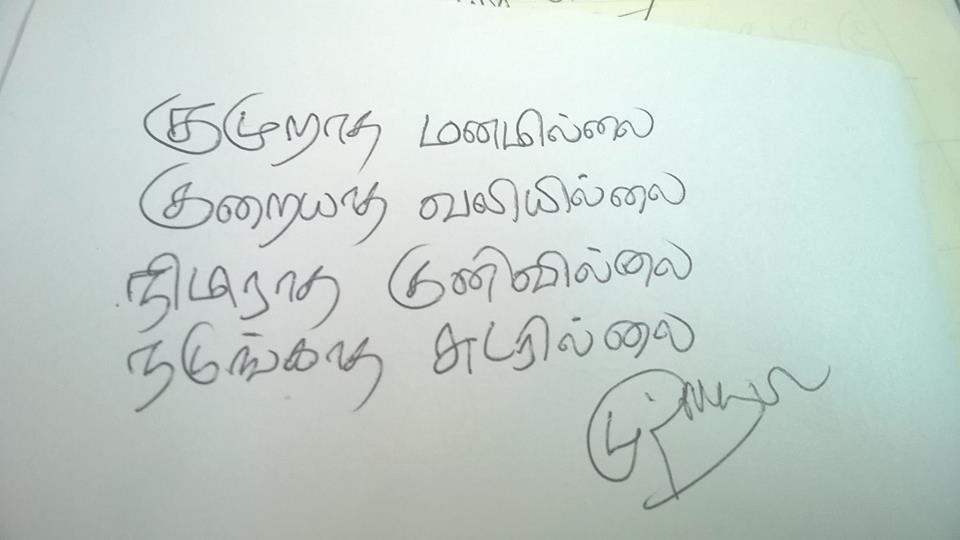 குமுறாத மனமில்லை
குறையாத வலியில்லை
நிமிராத குனிவில்லை
நடுங்காத சுடரில்லை